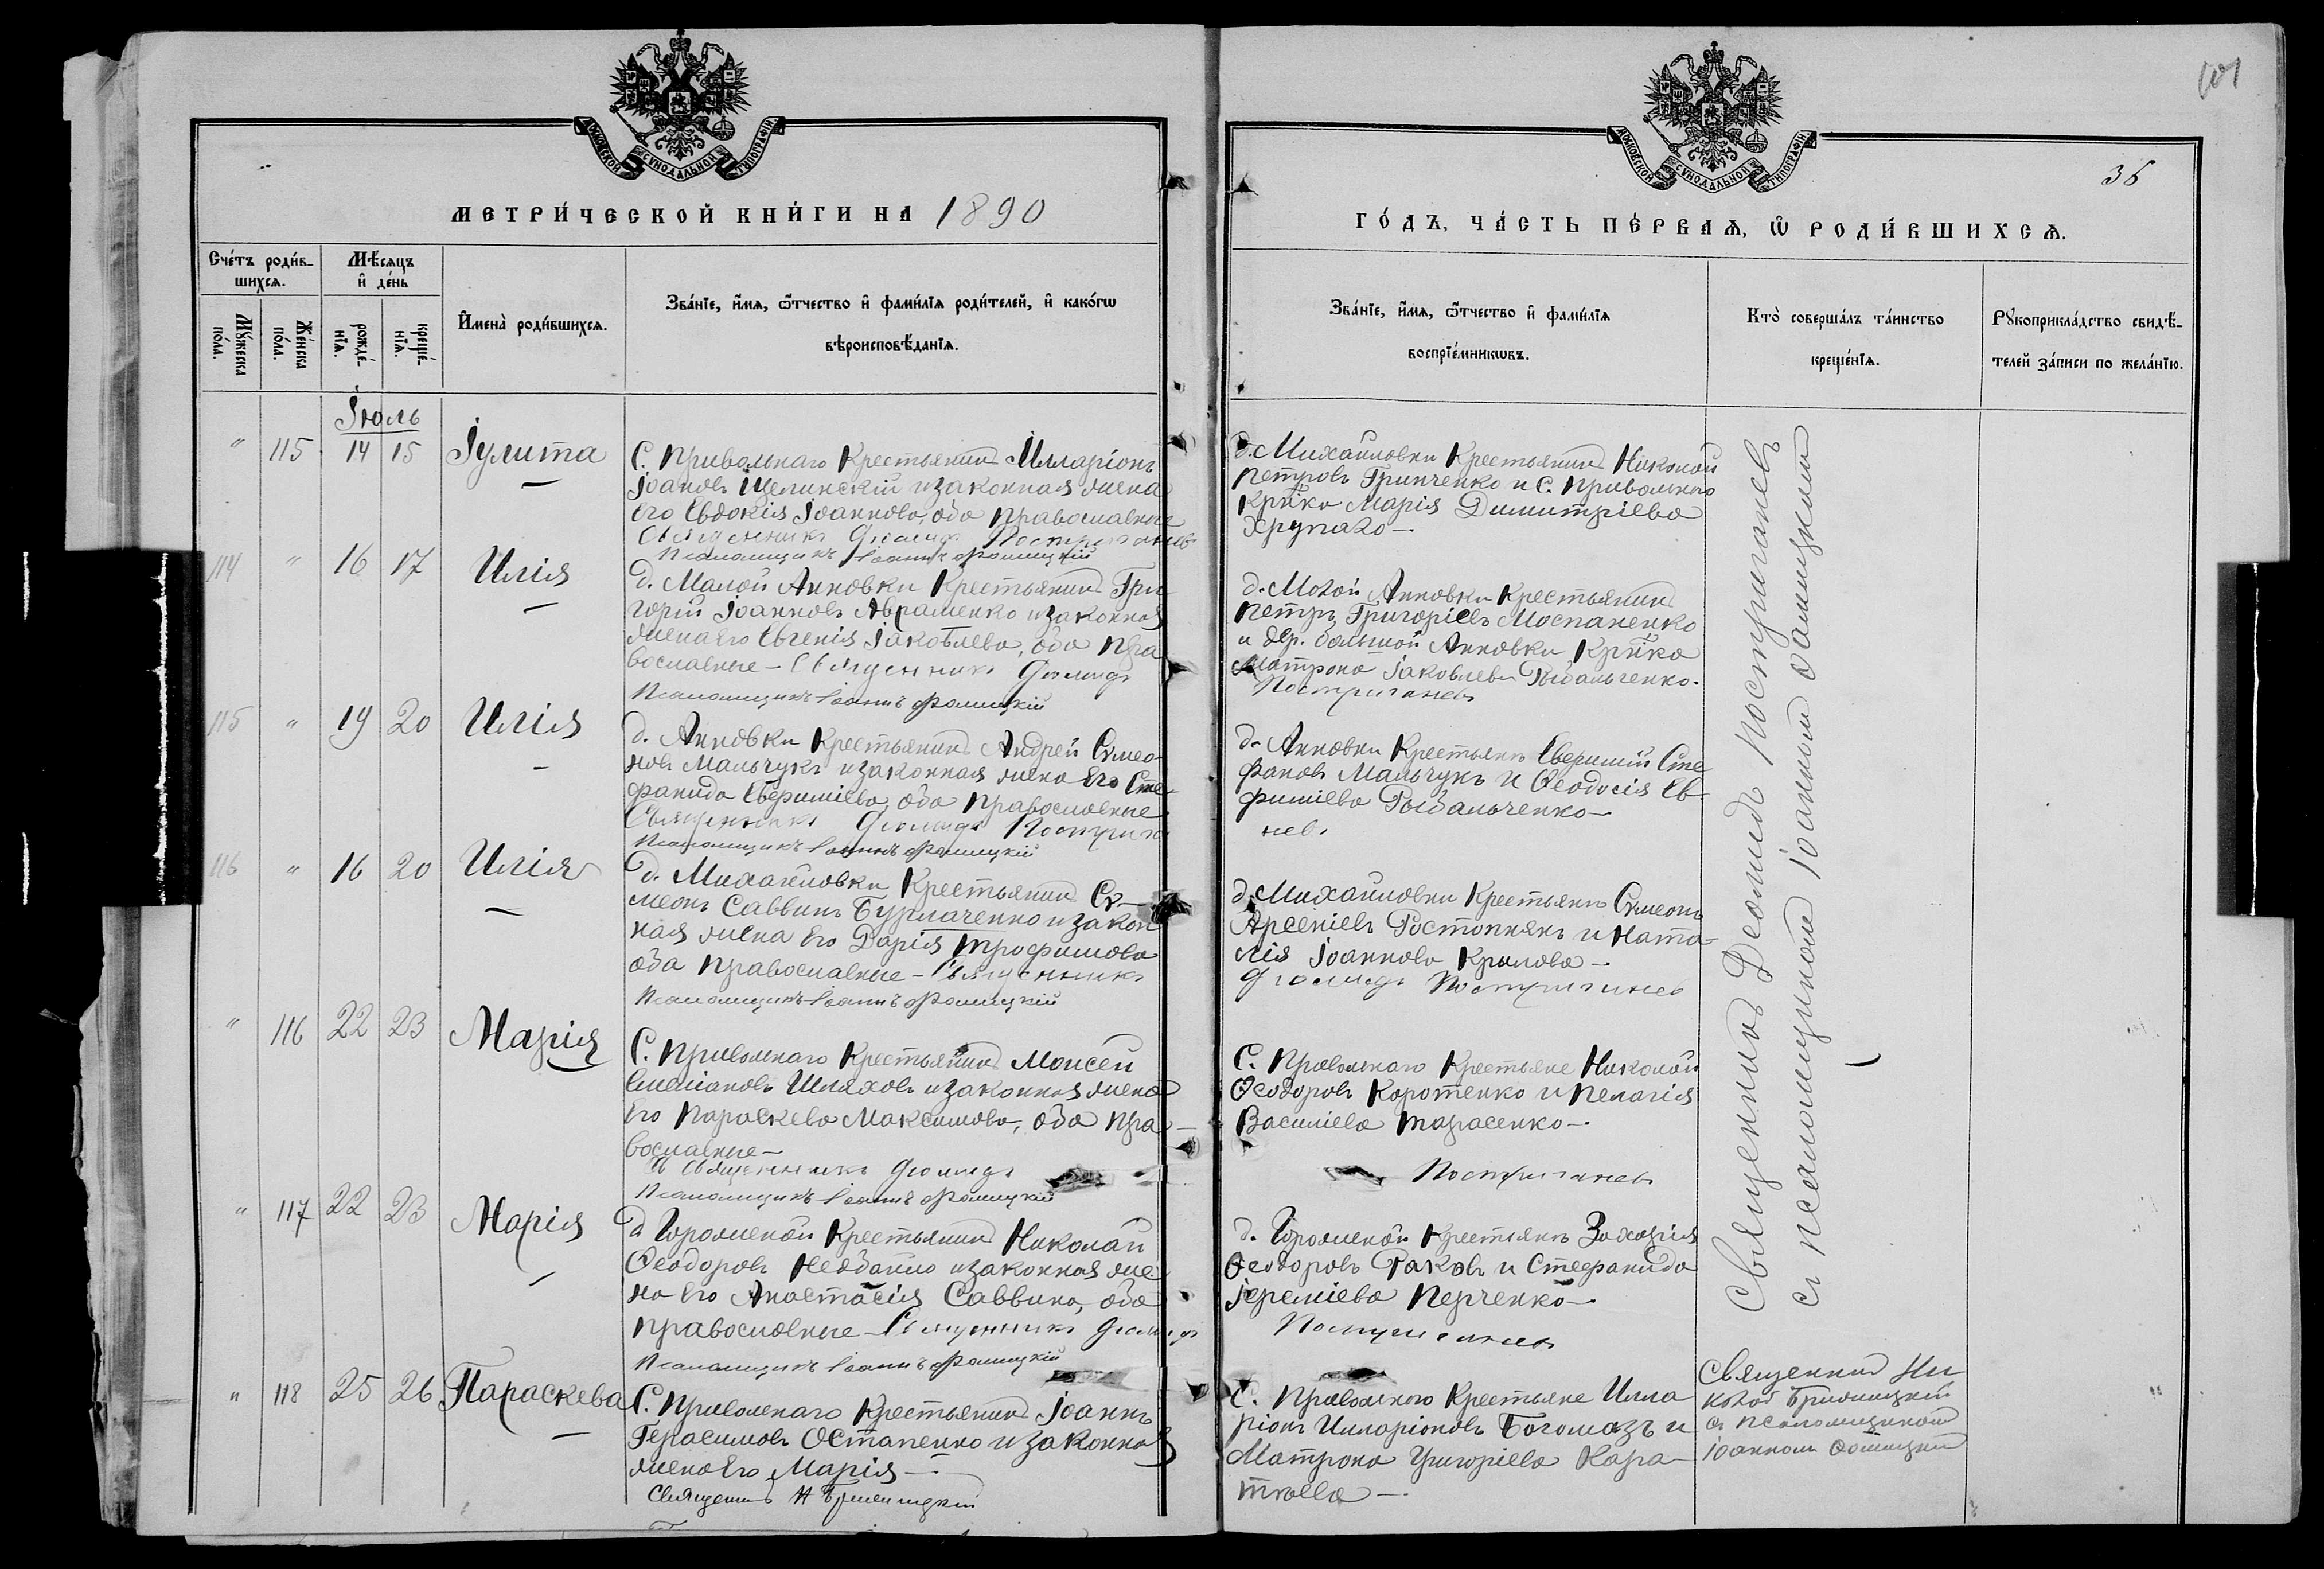 101
36
МОСКОВСКОЙ СѴНОДАЛЬНОЙ ТИПОГРАФІИ
МОСКОВСКОЙ СѴНОДАЛЬНОЙ ТИПОГРАФІИ
МЕТРИ́ЧЕСКОЙ КНИ́ГИ НА 1890
ГО́ДЪ, ЧА́СТЬ ПЕ́РВАѦ, Ѡ҆ РОДИ́ВШИХСѦ.
Сче́тъ роди́в-
шихсѧ.
Мѣ́сяцъ
и҆ де́нь
Мꙋ́жеска
по́ла.
Же́нска
по́ла.
рожде́-
нїѧ.
креще́-
нїѧ.
И҆мена̀ роди́вшихсѧ.
Зва́нїе, и҆́мѧ, ѻ҆́тчество и҆ фами́лїѧ роди́телей, и҆ како́гѡ
вѣроисповѣ́данїѧ.
Зва́нїе, и҆́мѧ, ѻ҆́тчество и҆ фами́лїѧ
воспрїе́мникѡвъ.
Кто̀ соверша́лъ та́инство
креще́нїѧ.
Рꙋкоприкла́дство свидѣ́-
телей за́писи по жела́нїю.
Іюль
" 115 14 15 Іулита
С. Привольнаго Крестьянинъ Илларіонъ
Іоановъ Щелинскій и законная жена
его Евдокія Іоаннова, оба православные
Священникъ Діомидъ Постриганевъ
Псаломщикъ Іоаннъ Фомицкій
д. Михайловки Крестьянинъ Николай
Петровъ Гринченко и С. Привольнаго
Кр̃нка Марія Димитріева
Хрупало-
114 " 16 17 Илія
д. Малой Анновки Крестьянинъ Гри-
горій Іоанновъ Авраменко и законная
жена его Евгенія Іаковлева, оба пра
вославные - Священникъ Діомидъ
Псаломщикъ Іоаннъ Фомицкій
д. Малой Анновки Крестьянинъ
Петръ Григоріевъ Моспаненко
и дер. большой Анновки Кр̃нка
Матрона Іаковлева Рыбальченко.
Постриганевъ
115 " 19 20 Илія
д. Анновки Крестьянинъ Андрей Сѵмео-
новъ Мальчукъ и законная жена его Сте-
фанида Евфиміева, оба православные
Священникъ Діомидъ Пострига
Псаломщикъ Іоаннъ Фомицкій
д. Анновки Крестьянъ Евфимій Сте
фановъ Мальчукъ и Ѳеодосія Ев-
фиміева Рыбальченко-
невъ
116 " 16 20 Илія
д. Михайловки Крестьянинъ Сѵ-
меонъ Саввинъ Бурлаченко и закон
ная жена его Дарія Трофимова
оба православные - Священникъ
Псаломщикъ Іоаннъ Фомицкій
д. Михайловки Крестьянъ Сѵмеонъ
Арсеніевъ Ростопнякъ и Ната-
лія Іоаннова Крылова-
Діомидъ Постриганевъ
" 116 22 23 Марія
С. Привольнаго Крестьянинъ Моисей
Емеліановъ Шляховъ и законная жена
его Параскева Максимова, оба пра-
вославные-
Священникъ Діомидъ
Псаломщикъ Іоаннъ Фомицкій
С. Привольнаго Крестьяне Николай
Ѳеодоровъ Коротенко и Пелагія
Василіева Тарасенко-
Постриганевъ
" 117 22 23 Марія
д. Крестьянинъ Николай
Ѳеодоровъ и законная же
на его Анастасія Саввина, оба
православные - Священникъ Діомидъ
Псаломщикъ Іоаннъ Фомицкій
д. Крестьянъ Захарія
Ѳеодоровъ Раковъ и Стефанида
Іереміева Перченко-
Постриганевъ
" 118 25 26 Параскева
С. Привольнаго Крестьянинъ Іоаннъ
Герасимовъ Остапенко и законная
жена его Марія-
Священникъ Н
С. Привольнаго Крестьяне Илла
ріонъ Илларіоновъ Богомазъ и
Матрона Григоріева Кара-
Священникъ Діомидъ Постриганевъ
съ псаломщикомъ Іоанномъ Фомицкимъ
Священникъ Ни
колай
съ псаломщикомъ
Іоанномъ Фомицкимъ